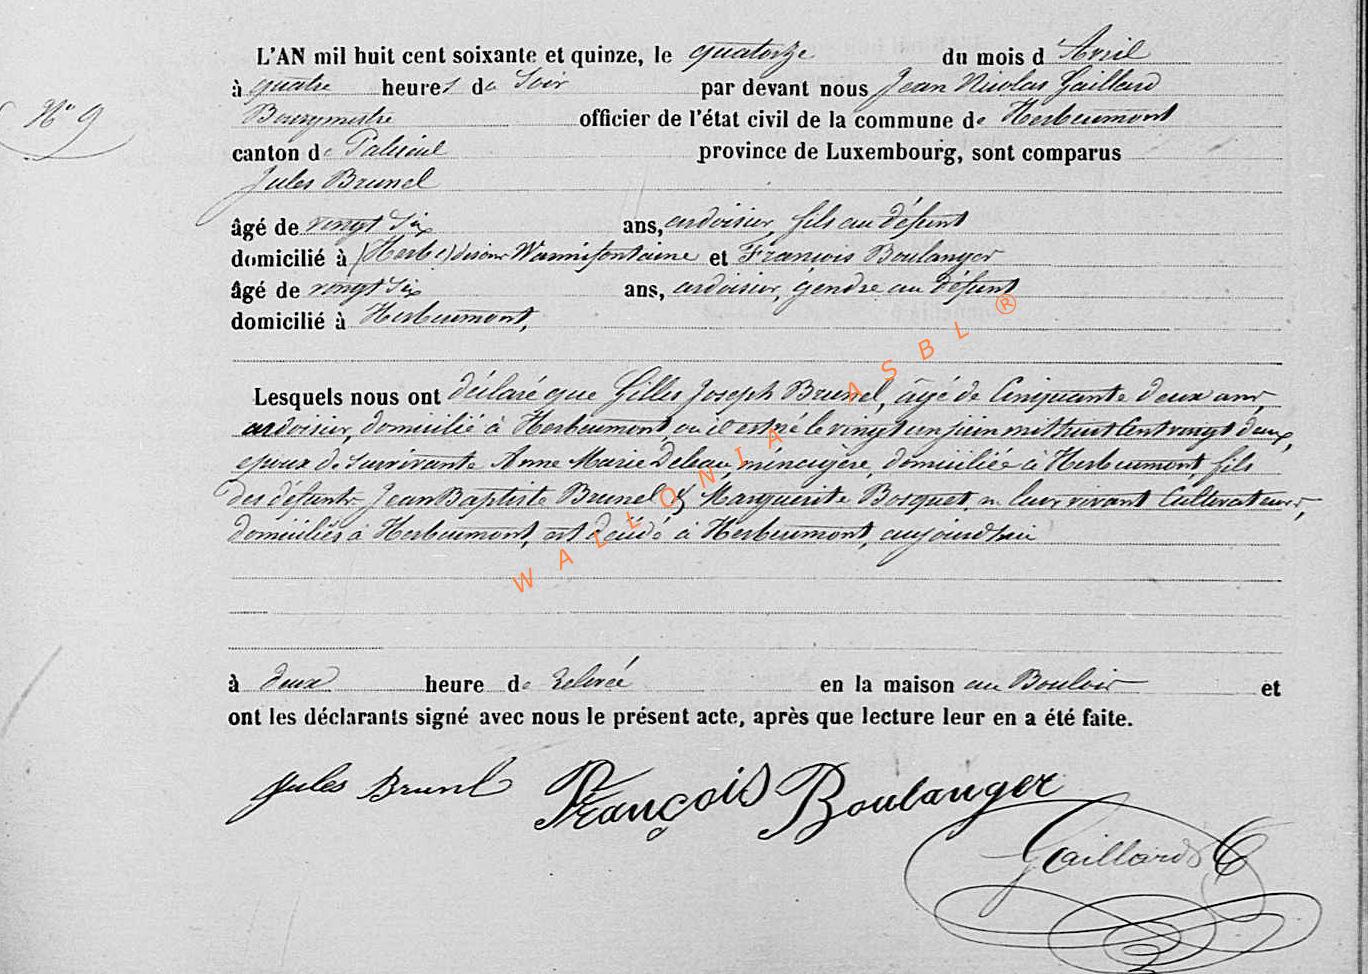 L'AN mil huit cent soixante et quinze, le quatorze du mois d'Avril
à quatre heures du Soir par devant nous Jean Nicolas Gaillard
N° 9
Bourgmestre officier de l'état civil de la commune de Herbeumont
canton de Paliseul province de Luxembourg, sont comparus
Jules Brunel
âgé de vingt six ans, ardoisier, fils au défunt
domicilié à Warmifontaine et François Boulanger
âgé de vingt six ans, ardoisier, gendre au défunt
domicilié à Herbeumont,
Lesquels nous ont déclaré que Gilles Joseph Brunel, âgé de Cinquante deux ans,
ardoisier, domicilié à Herbeumont où il est né le vingt un juin mil huit Cent vingt deux,
époux de survivante Anne Marie ménagère, domiciliée à Herbeumont, fils
des défunts Jean Baptiste Brunel & Marguerite Bosquet, en leur vivant Cultivateurs,
domiciliés à Herbeumont, est décédé à Herbeumont, aujourd'hui
à deux heure de relevée en la maison au Bouloir et
ont les déclarants signé avec nous le présent acte, après que lecture leur en a été faite.
Jules Brunel François Boulanger
Gaillard
WALLONIA ASBL ®